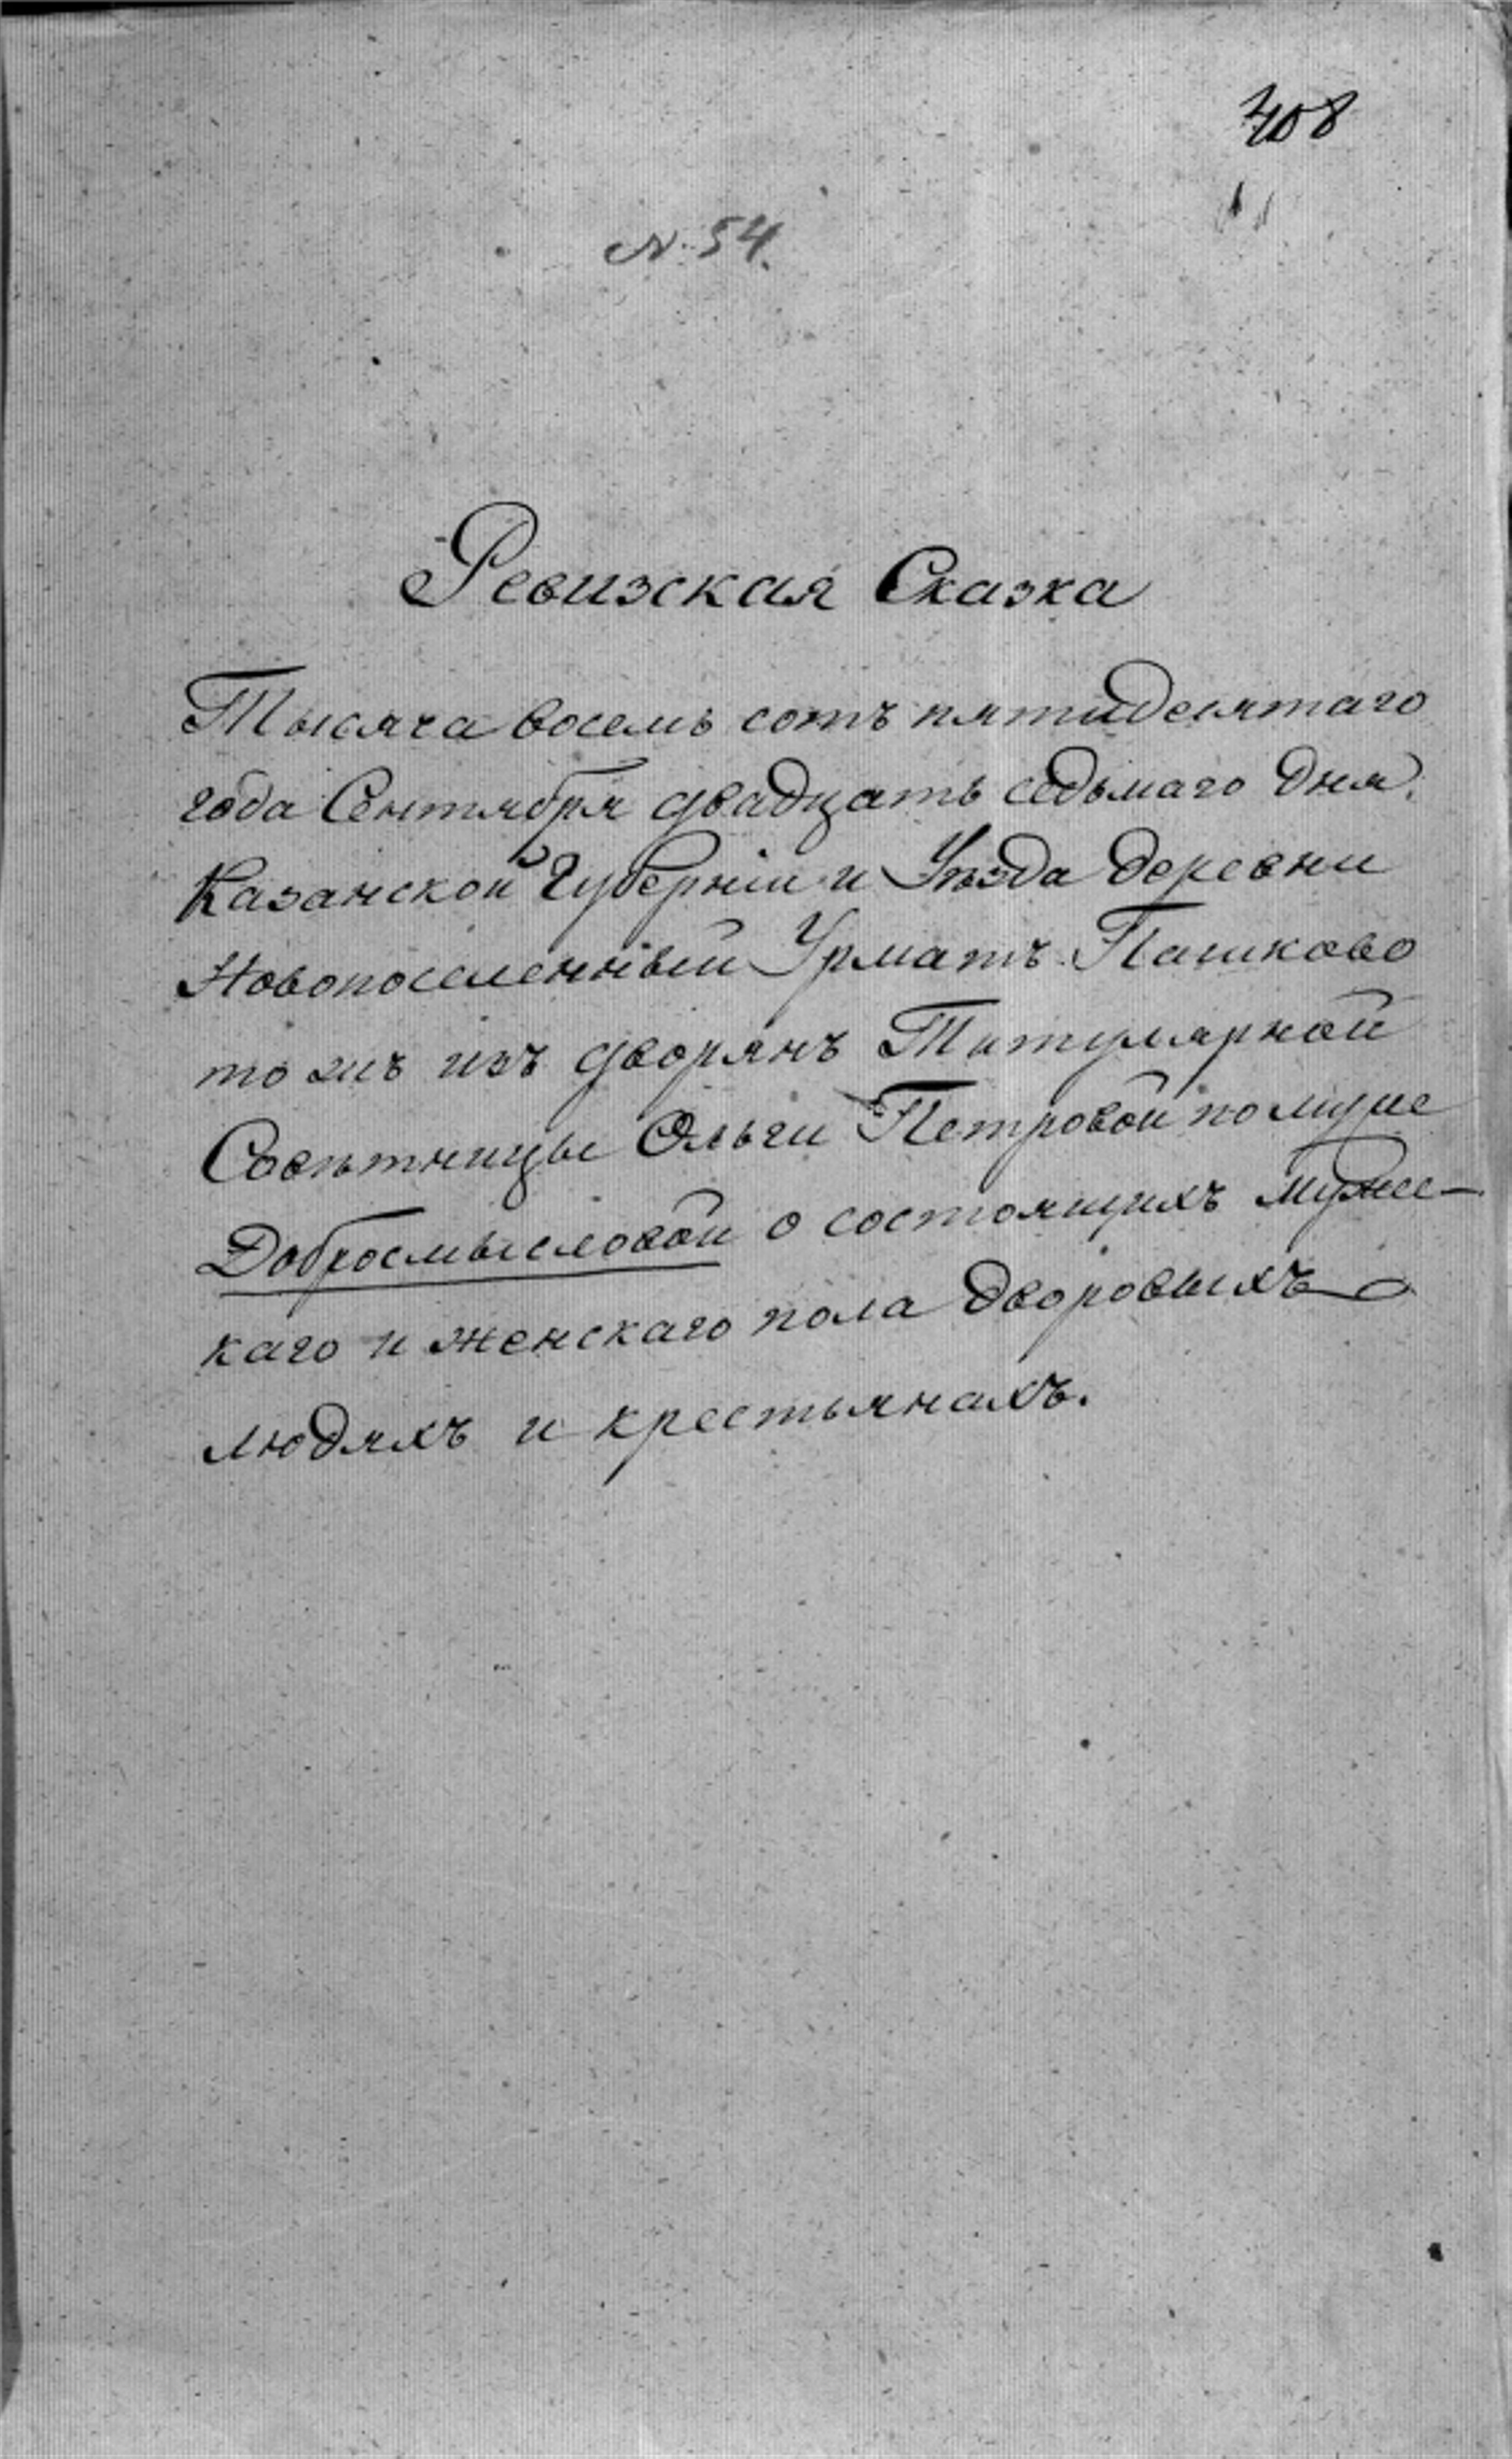 408
N. 54.
Ревизская Сказка
Тысяча восемь сотъ пятидесятаго
года Сентября двадцать седьмаго дня.
Казанской Губерніи и Уѣзда деревни
Новопоселенный Урматъ Пашково
то жъ изъ дворянъ Титулярной
Совѣтницы Ольги Петровой по муже
Добросмысловой о состоящихъ мужес-
каго и женскаго пола дворовыхъ
людяхъ и крестьянахъ.